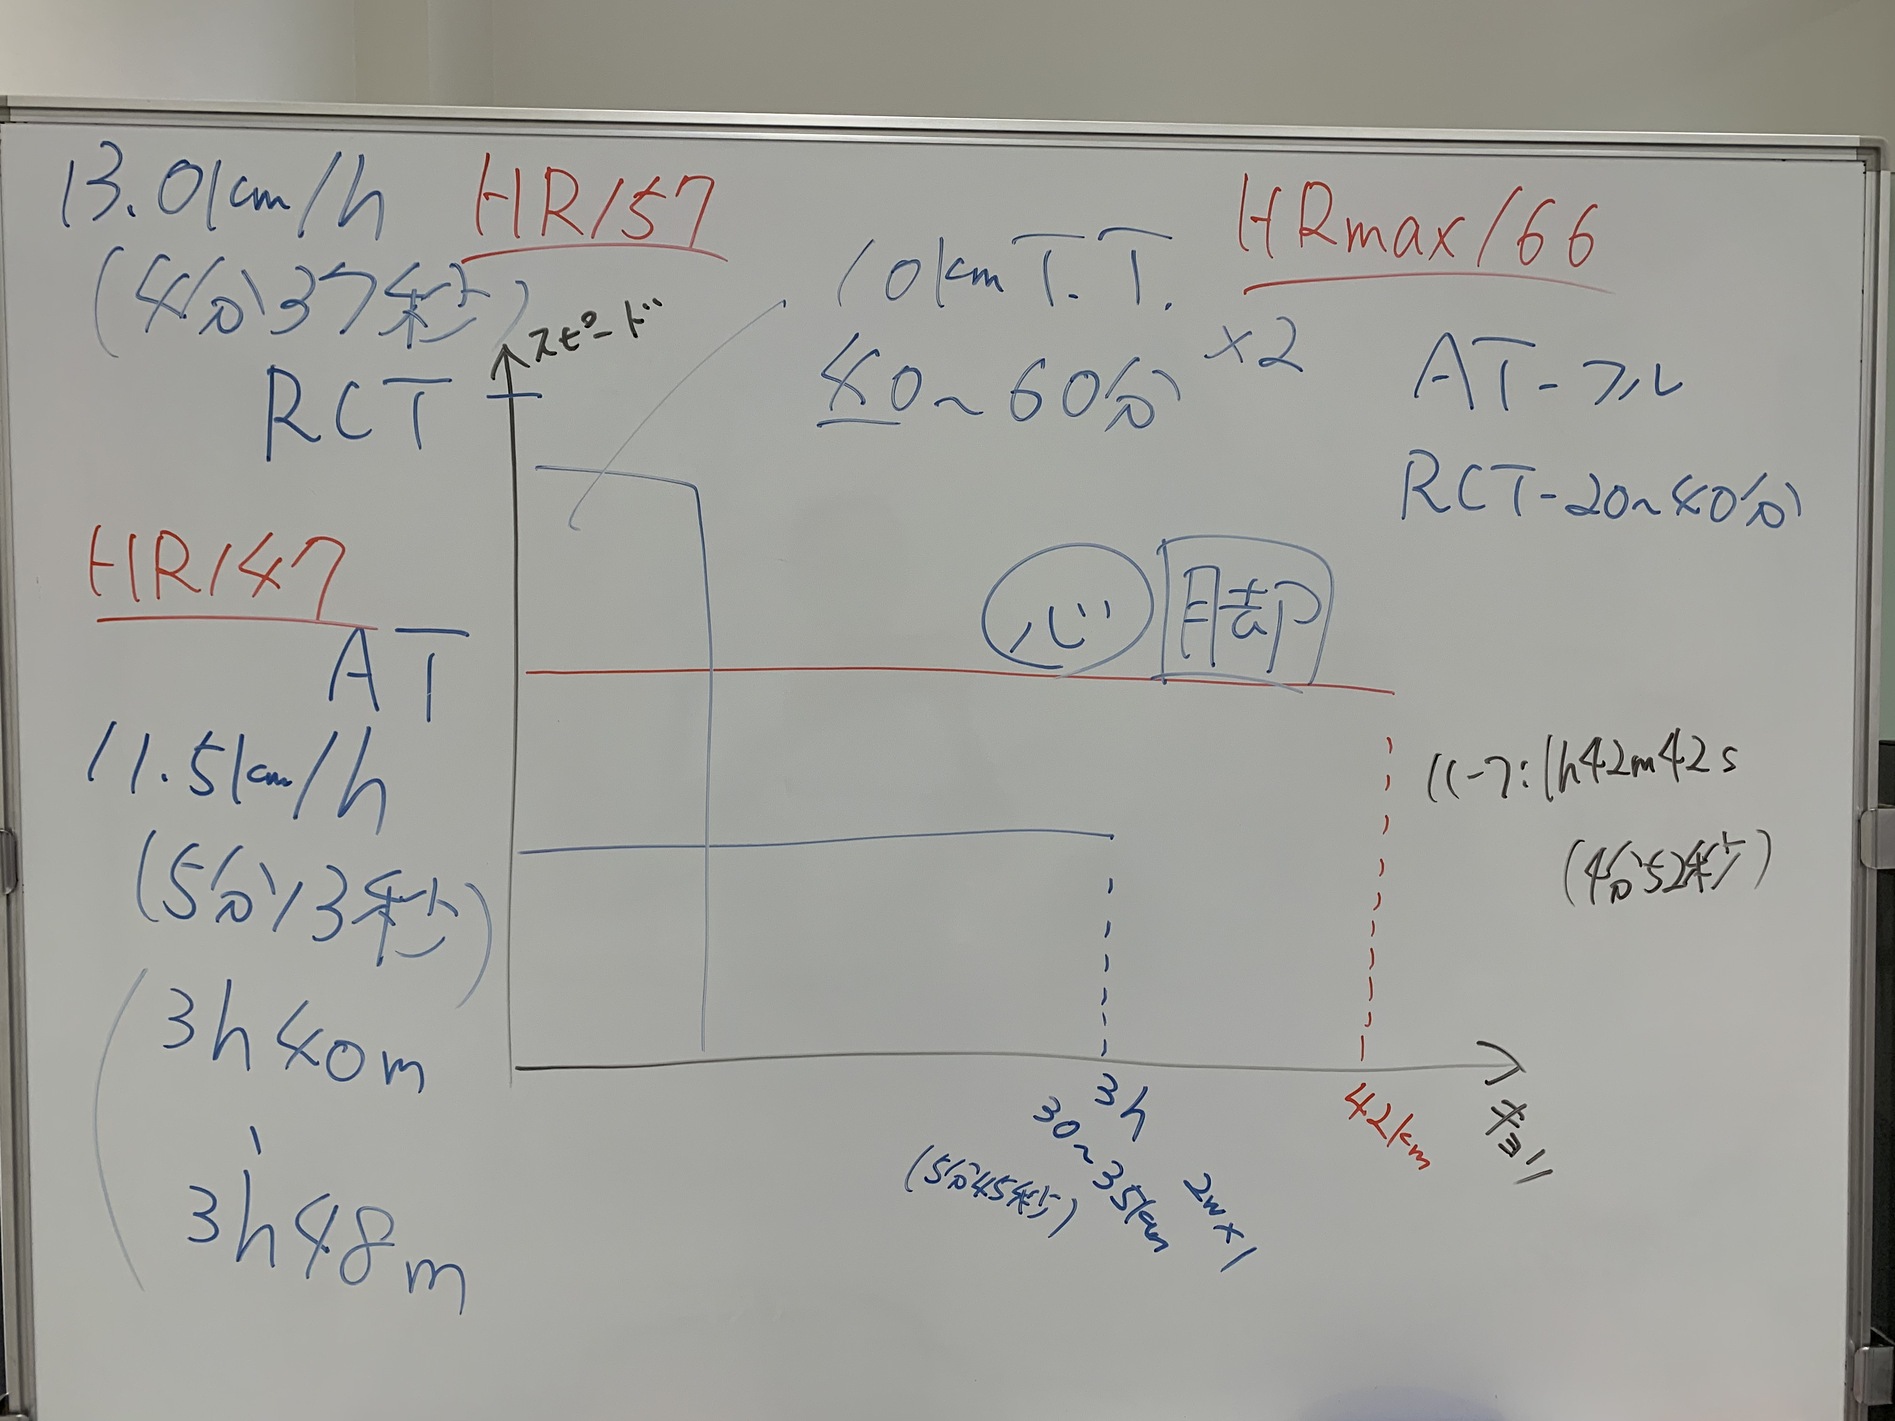 13.0km/h
HR157
(4分37秒)
RCT
スピード
10kmT.T.
40~60分 ×2
HRmax166
AT-フル
RCT-20~40分
HR147
AT
11.5km/h
(5分13秒)
3h40m
3h48m
心
脚
ハーフ:1h42m42s
(4分52秒)
3h
30~35km
(5分45秒)
2w×1
42km
キョリ